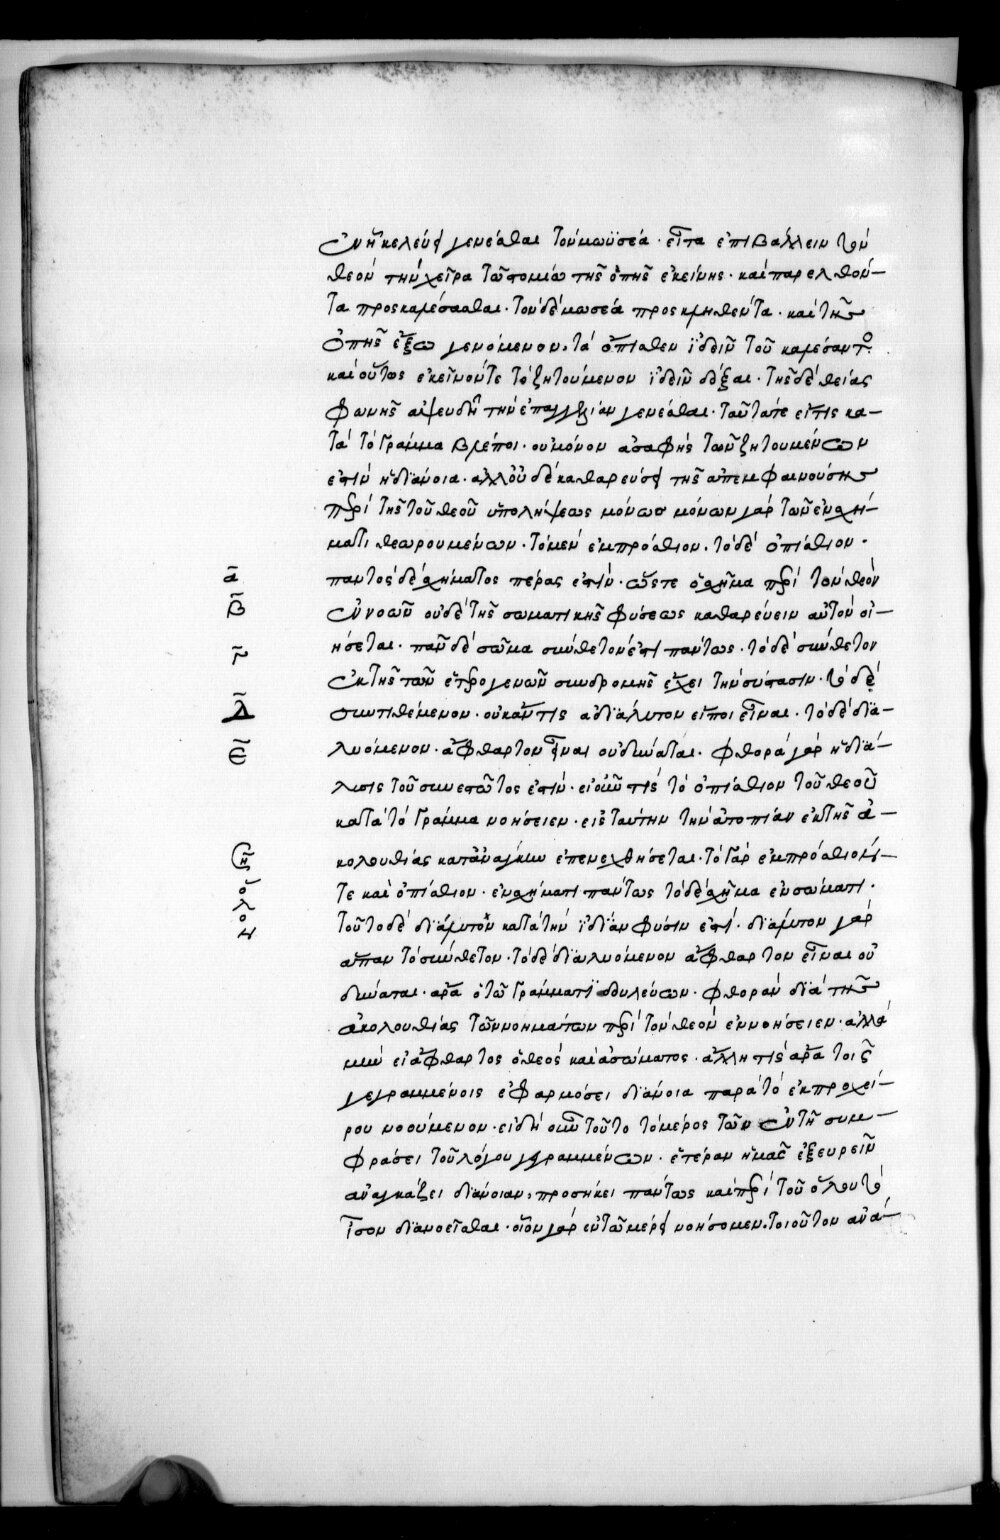 ἐν ᾗ κελεύει γενέσθαι τὸν μωϋσέα · εἶτα ἐπιβάλλειν τὸν
θεὸν τὴν χεῖρα τῷ στομίω τῆς ὀπῆς ἐκείνης · καὶ παρελθόν-
τα προσκαλέσασθαι · τὸν δὲ μωσέα προσκληθέντα · καὶ τῆς
ὀπῆς ἔξω γενόμενον, τὰ ὄπισθεν ἰδεῖν τοῦ καλέσαντος ·
καὶ οὕτως ἐκεῖνόν τε τὸ ζητούμενον ἰδεῖν δόξαι · τῆς δὲ θείας
φωνῆς ἀψευδῆ τὴν ἐπαγγελίαν γενέσθαι · ταῦτα τε εἴ τις κα-
τὰ τὸ γράμμα βλέποι · οὐ μόνον ἀσαφὴς τῶν ζητουμένων
ἐστὶν ἡ διάνοια · ἀλλ' οὐδὲ καθαρεύσει τῆς ἀπεμφαινούσης
περὶ τῆς τοῦ θεοῦ ὑπολήψεως μόνων μόνων γὰρ τῶν ἐν σχή-
ματι θεωρουμένων · τὸ μὲν ἐμπρόσθιον · τὸ δὲ ὀπίσθιον ·
α παντὸς δὲ σχήματος πέρας ἐστίν · ὥστε ὁ σχῆμα περὶ τὸν θεὸν
β ἐννοῶν οὐδὲ τῆς σωματικῆς φύσεως καθαρεύειν αὐτὸν οἰ-
ήσεται · πᾶν δὲ σῶμα σύνθετόν ἐστι πάντως · τὸ δὲ σύνθετον
γ ἐκ τῆς τῶν ἑτερογενῶν συνδρομῆς ἔχει τὴν σύστασιν · τὸ δὲ
δ συντιθέμενον · οὐκ ἄν τις ἀδιάλυτον εἴποι εἶναι · τὸ δὲ δια-
ε λυόμενον · ἄφθαρτον εἶναι οὐ δύναται · φθορὰ γὰρ ἡ διά-
λυσις τοῦ συνεστῶτος ἐστίν · εἰ οὖν τις τὸ ὀπίσθιον τοῦ θεοῦ
κατὰ τὸ γράμμα νοήσειεν · εἰς ταύτην τὴν ἀτοπίαν ἐκ τῆς ἀ-
κολουθίας κατ' ἀνάγκην ἐπενεχθήσεται · τὸ γὰρ ἐμπρόσθιόν
τε καὶ ὀπίσθιον · ἐν σχήματι πάντως τὸ δὲ σχῆμα ἐν σώματι ·
τοῦτο δὲ διάλυτὸν κατὰ τὴν ἰδίαν φύσιν ἐστί · διάλυτον γὰρ
ἅπαν τὸ σύνθετον · τὸ δὲ διαλυόμενον ἄφθαρτον εἶναι οὐ
δύναται · ἄρα ὁ τῷ γράμματι δουλεύων · φθορὰν διὰ τῆς
ἀκολουθίας τῶν νοημάτων περὶ τὸν θεὸν ἐννοήσειεν · ἀλλὰ
μὴν εἰ ἄφθαρτος ὁ θεὸς καὶ ἀσώματος · ἄλλη τις ἄρα τοῖς
γεγραμμένοις ἐφαρμόσει διάνοια παρὰ τὸ ἐκ προχεί-
ρου νοούμενον · εἰ δὴ οὖν τοῦτο τὸ μέρος τῶν ἐν τῇ συμ-
φράσει τοῦ λόγου γεγραμμένων · ἑτέραν ἡμᾶς ἐξευρεῖν
ἀναγκάζει διάνοιαν, προσήκει πάντως καὶ περὶ τοῦ ὅλου τὸ
ἴσον διανοεῖσθαι · οἷον γὰρ ἐν τῷ μέρει νοήσομεν, τοιοῦτον ἀνά-